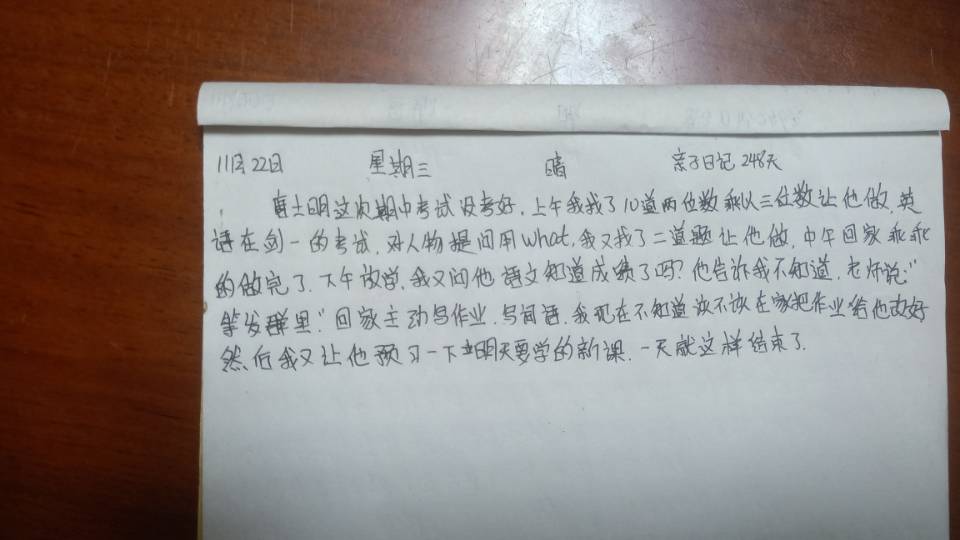 11月22日 星期三 晴 亲子日记 248天
唐士明这次期中考试没考好,上午我找了10道两位数乘以三位数让他做,英
语在剑一的考试,对人物提问用what,我又找了二道题让他做,中午回家乖乖
的做完了.下午放学,我又问他语文知道成绩了吗?他告诉我不知道,老师说:"
等发群里."回家主动写作业,写词语,我现在不知道该不该在家把作业给他改好
然后我又让他预习一下明天要学的新课.一天就这样结束了.